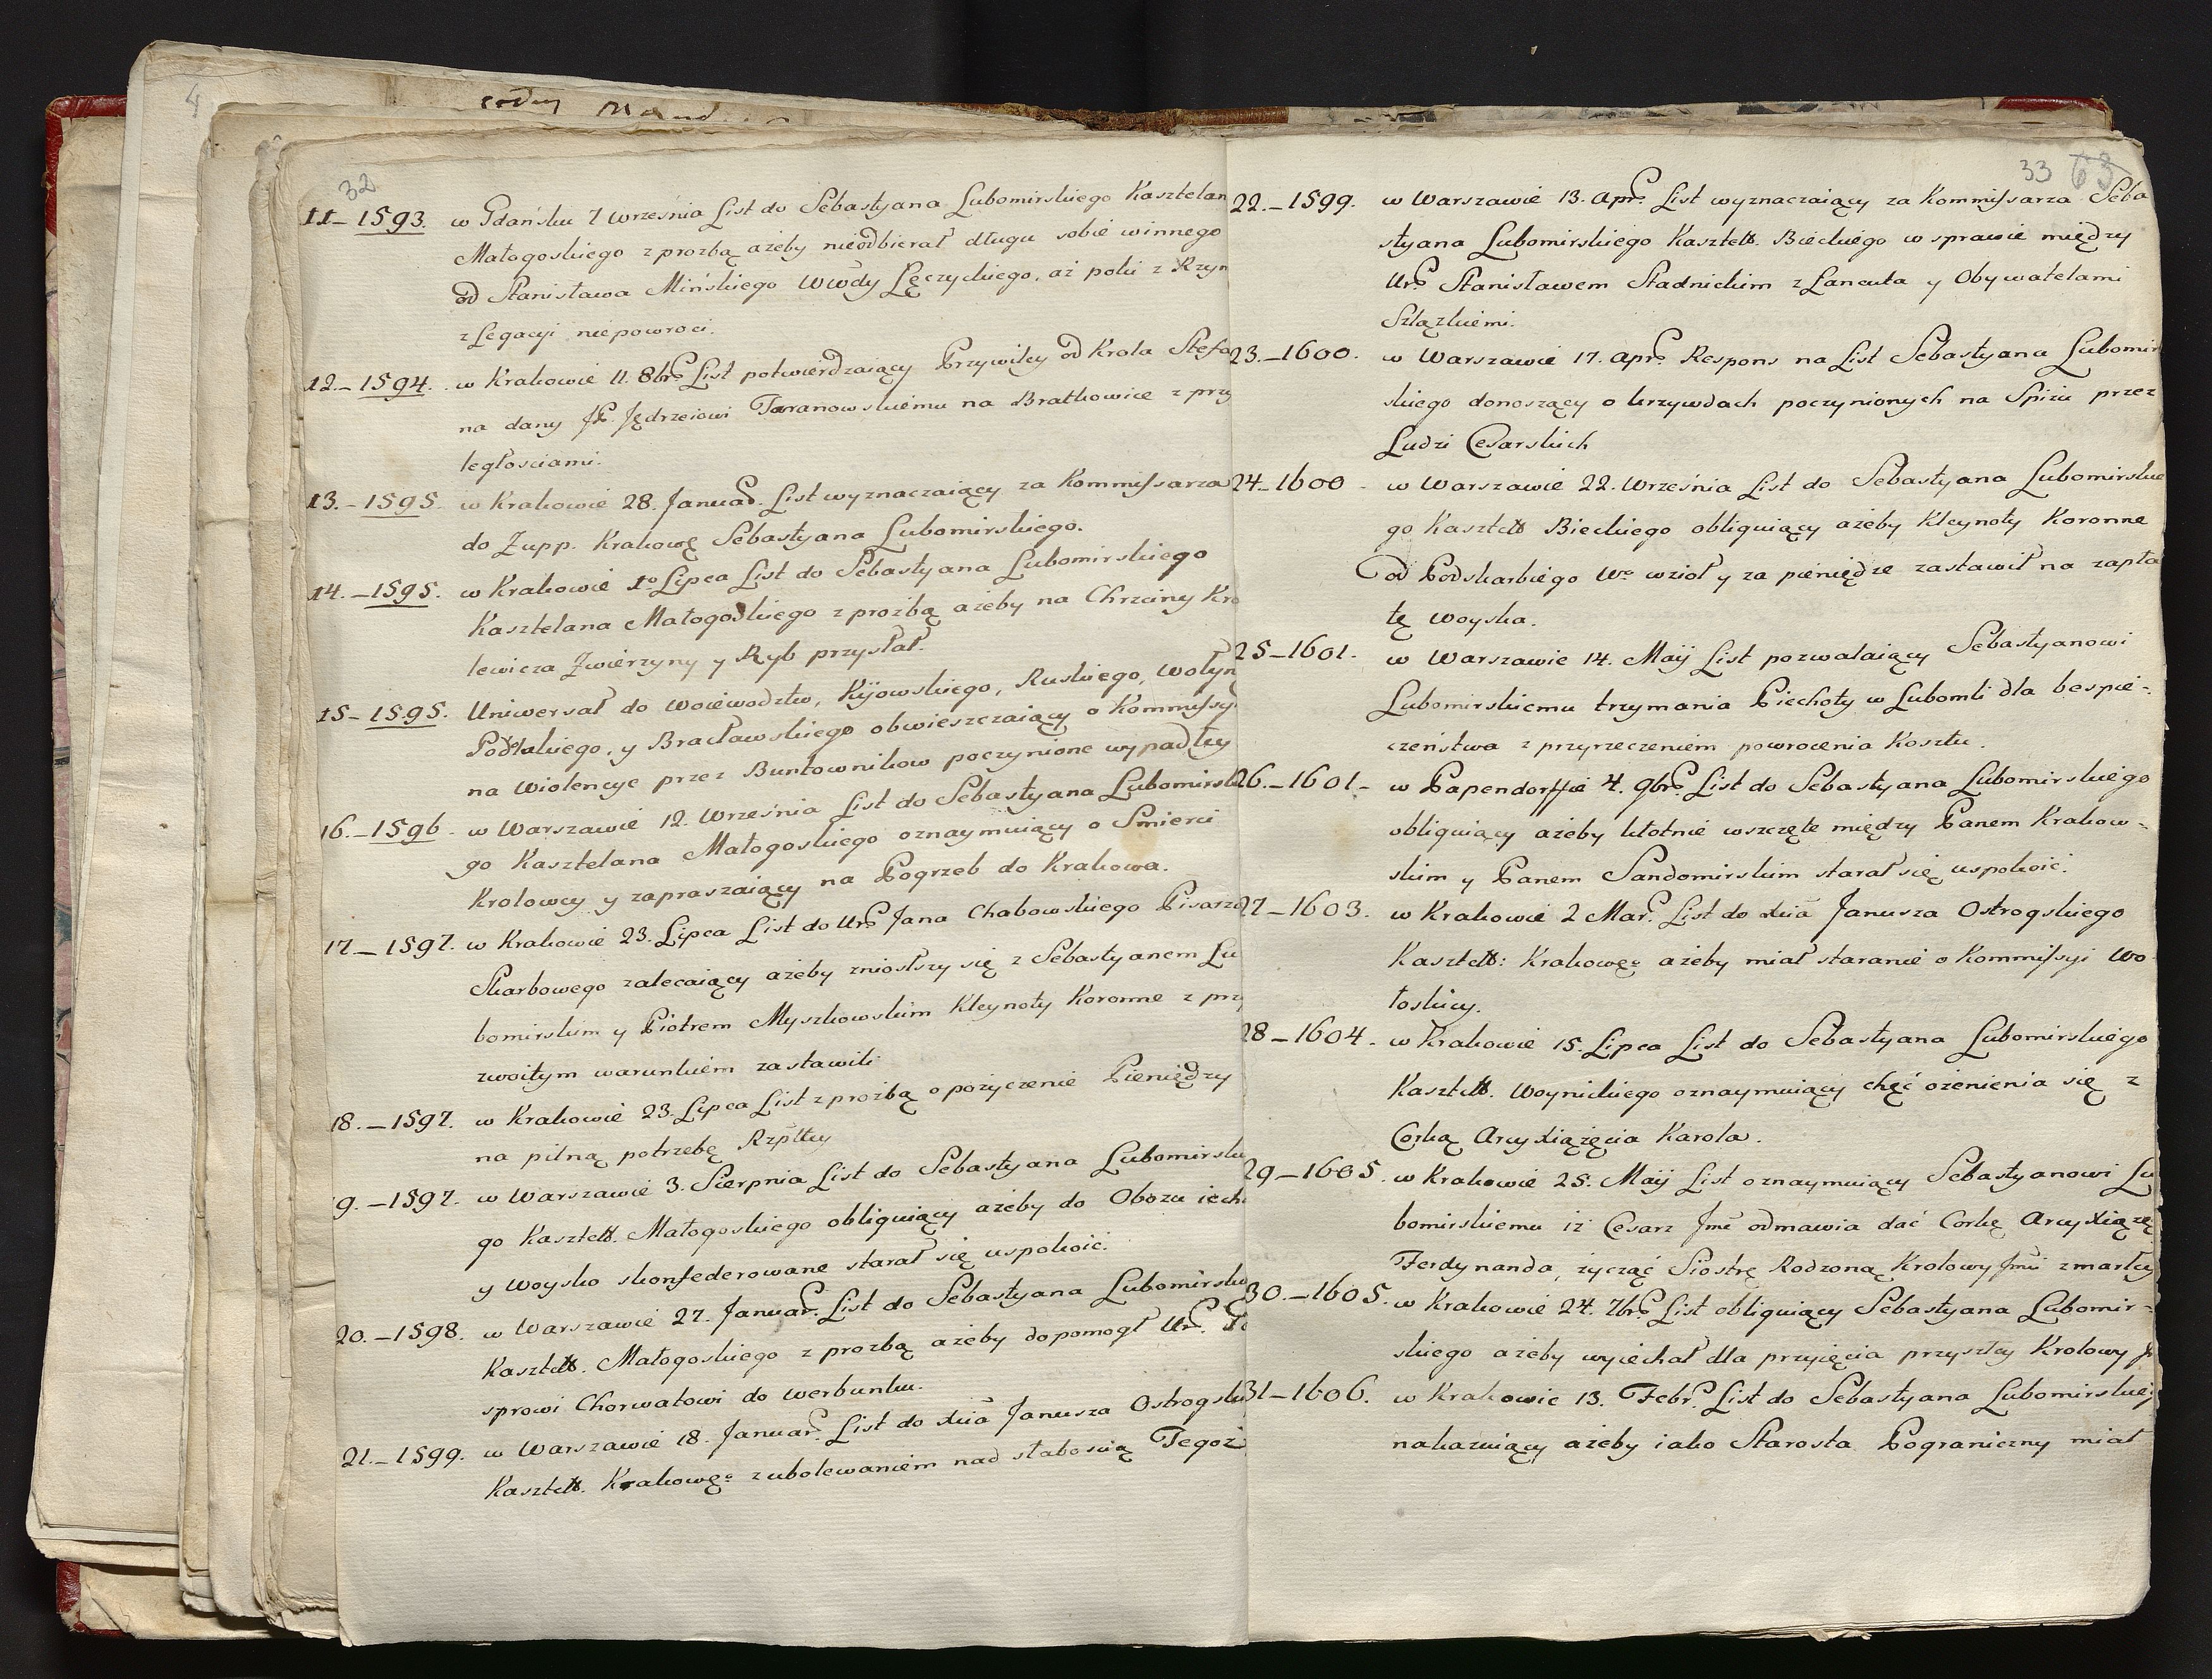 4
eodem Mand
32
11_ 1593. w Gdańsku 7 Września List do Sebastyana Lubomirskiego Kasztelan
Małogoskiego z prozbą ażeby nieodbierał długu sobie winnego
od Stanisława Mińskiego Wwdy Łęczyckiego, aż poki z Rzym
z Legacyi niepowroci.
12._ 1594. w Krakowie 11. 8br. List potwierdzaiący Przywiley od Krola Stefa
na dany JP. Jędrzeiowi Taranowskiemu na Bratkowice z przy
ległosciami.
13. _ 1595. w Krakowie 28. Januar. List wyznaczaiący za Kommissarza
do Zupp. Krakowę Sebastyana Lubomirskiego.
14. _ 1595. w Krakowie 1o Lipca List do Sebastyana Lubomirskiego
Kasztelana Małogoskiego z prożbą ażeby na Chrzciny Kro
lewicza Zwierzyny y Ryb przysłał.
15_ 1595. Uniwersał do Woiewodztw, Kijowskiego, Ruskiego, Wołyn
Podolskiego, y Bracławskiego obwieszczaiący o Kommissy
na Wiolencye przez Buntownikow poczynione wypadłey
16._ 1596. w Warszawie 12. Września List do Sebastyana Lubomirskie
go Kasztelana Małogoskiego oznaymuiący o Smierci
Krolowey y zapraszaiący na Pogrzeb do Krakowa.
17_ 1597. w Krakowie 23. Lipca List do Ur. Jana Chabowskiego Pisarza
Skarbowego zalecaiący ażeby zniosłszy się z Sebastyanem Lu
bomirskim y Piotrem Myszkowskim Kleynoty Koronne z przy
zwoitym warunkiem zastawili
18. _ 1597. w Krakowie 23. Lipca List z prożbą o pożyczenie Pieniędzy
na pilną potrzebę Rzpltey
9. _ 1597. w Warszawie 3. Sierpnia List do Sebastyana Lubomirskie
go Kasztell. Małogoskiego obliguiący ażeby do Obozu iech
y Woysko skonfederowane starał się uspokoić.
20. _ 1598. w Warszawie 27. Januar. List do Sebastyana Lubomirskie
Kasztell. Małogoskiego z prozbą ażeby dopomogł Ur.
sprowi Chorwatowi do Werbunku.
21. _ 1599. w Warszawie 18. Januar. List do Xcia Janusza Ostrogski
Kasztell. Krakowę. z ubolewaniem nad słaboscią Tegoż
33 63
22. _ 1599. w Warszawie 13. Apr. List wyznaczaiący za Kommissarza Seba
styana Lubomirskiego Kasztell. Bieckiego w sprawie między
Ur. Stanisławem Stadnickim z Lancuta y Obywatelami
Szlązkiemi.
23. _ 1600. w Warszawie 17. Apr. Respons na List Sebastyana Lubomir
skiego donoszący o krzywdach poczynionych na Spiżu przez
Ludzi Cesarskich
24_ 1600 _ w Warszawie 22. Września List do Sebastyana Lubomirskie
go Kasztell Bieckiego obliguiący ażeby Kleynoty Koronne
od Podskarbiego Wo wzioł y za pieniędze zastawił na zapła
tę Woyska.
25_ 1601. w Warszawie 14. Maij List pozwalaiący Sebastyanowi
Lubomirskiemu trzymania Piechoty w Lubomli dla bespie-
czeństwa z przyrzeczeniem powrocenia Kosztu.
26. _ 1601 _ w Papendorffie 4. 9br. List do Sebastyana Lubomirskiego
obliguiący ażeby kłotnie wszczęte między Panem Krakow-
skim y Panem Sandomirskim starał się uspokoić.
27_ 1603. w Krakowie 2 Mar. List do Xcia Janusza Ostrogskiego
Kasztell: Krakowę. ażeby miał staranie o Kommissyi Wo
łoskiey.
28 _ 1604. w Krakowie 15. Lipca List do Sebastyana Lubomirskiego
Kasztell. Woynickiego oznaymuiący chęć ożenienia się z
Corką Arcy Xiążęcia Karola.
29 _ 1605. w Krakowie 25. Maij List oznaymuiący Sebastyanowi Lu
bomirskiemu iż Cesarz Jmć odmawia dać Corkę Arcy Xiążę
Ferdynanda, życząć Siostrę Rodzoną Krolowy Jmci zmarłey
30. _ 1605. w Krakowie 24. 7br. List obliguiący Sebastyana Lubomir-
skiego ażeby wyiechał dla przyięcia przyszłey Krolowy
31_ 1606. w Krakowie 13. Febr. List do Sebastyana Lubomirskieg
nakazuiący ażeby iako Starosta Pograniczny miał